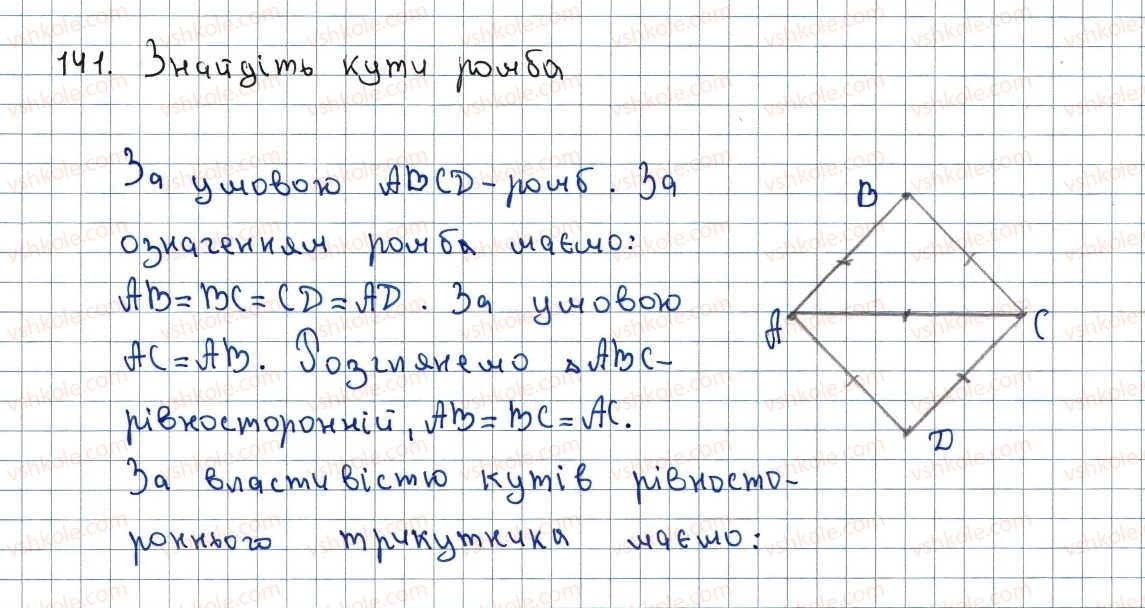 141. Знайдіть кути ромба
За умовою ABCD - ромб. За
означенням ромба маємо:
AB = BC = CD = AD. За умовою
AC = AB. Розглянемо △ABC -
рівносторонній, AB = BC = AC.
За властивістю кутів рівносто-
роннього трикутника маємо:
B
A
C
D
vshkole.com